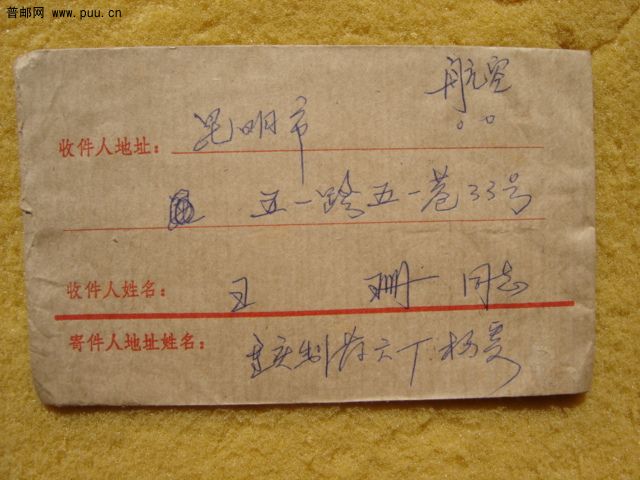 普邮网 www.puu.cn
航空
收件人地址： 昆明市
五一路五一巷33号
收件人姓名： 王 珊 同志
寄件人地址姓名： 重庆制药六厂 杨